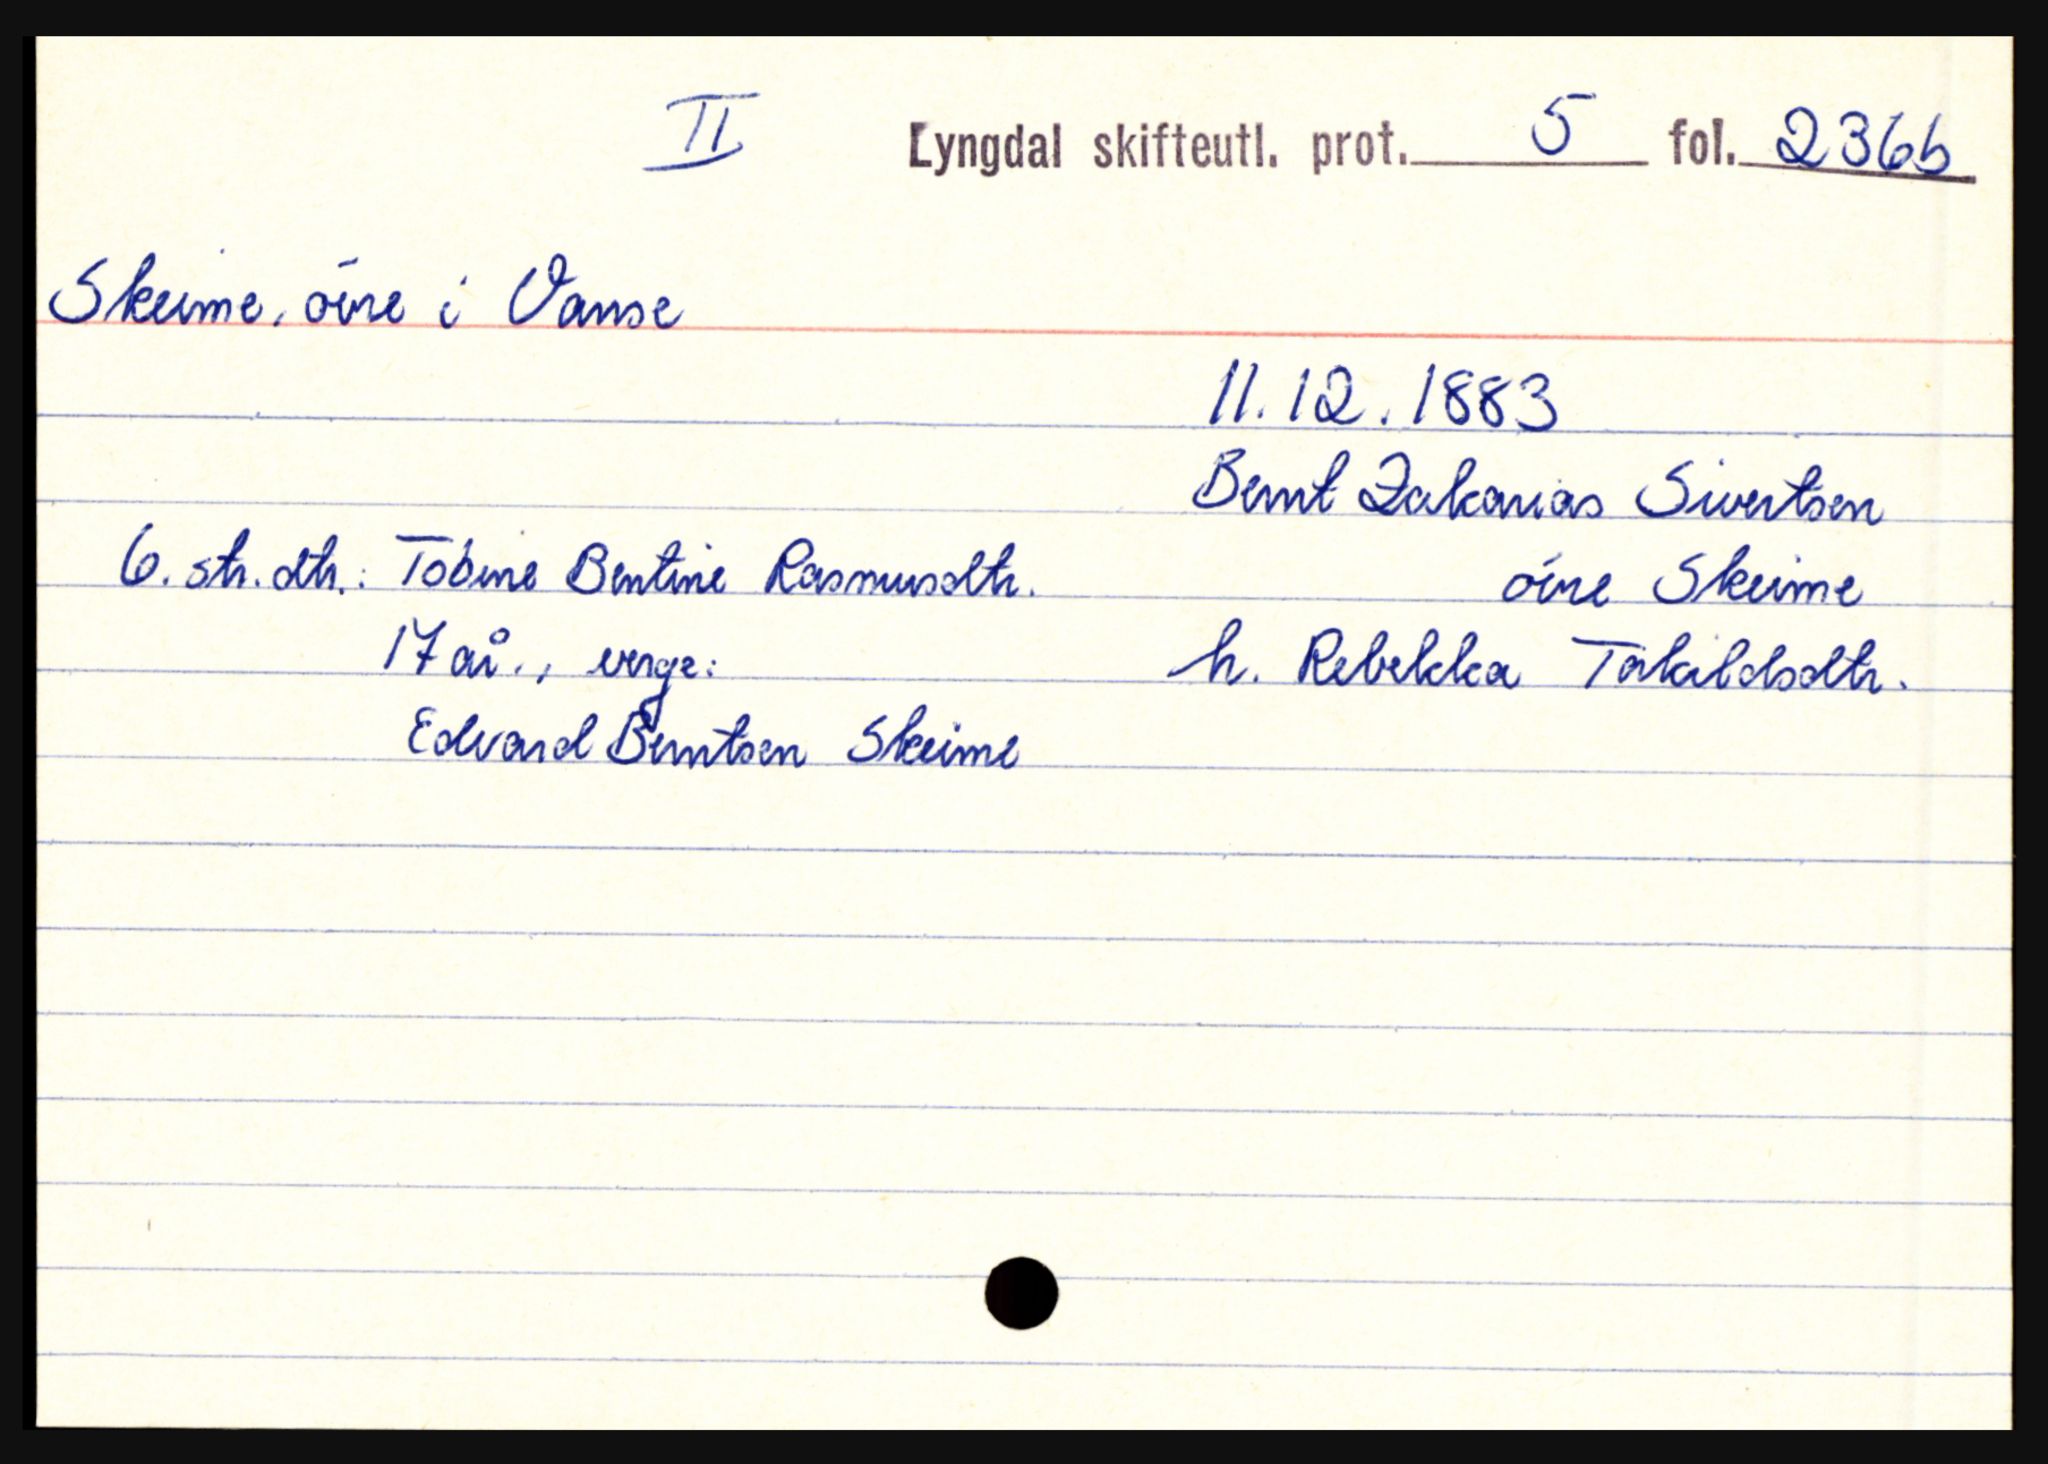 II Lyngdal skifteutl. prot. 5 fol. 236b
Skeime, öire i Vanse
11.12.1883
Bernt Zakarias Sivertsen
6. str. dtr.: Tobine Bentine Rasmusdtr.
öire Skeime
17 år., verge:
h. Rebekka Torkildsdtr.
Edvard Berntsen Skeime